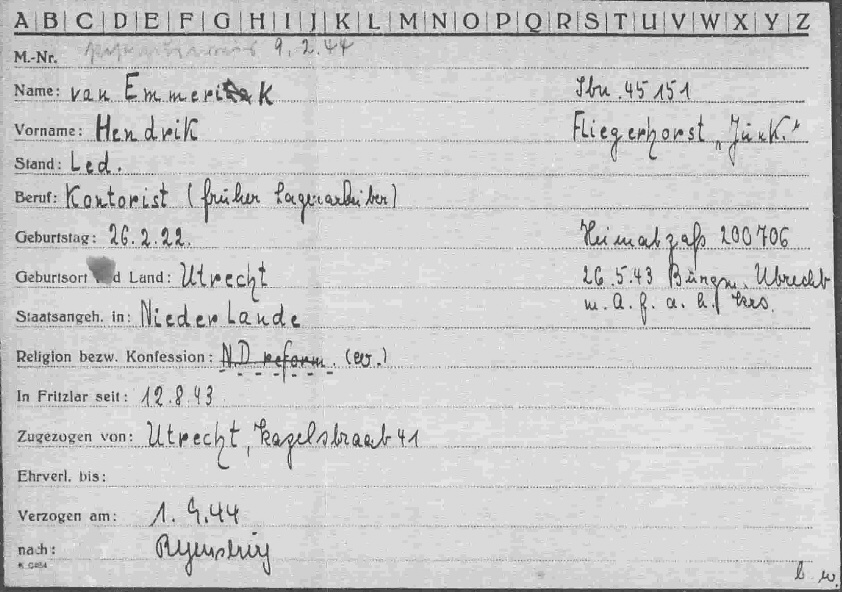 A B C D E F G H I J K L M N O P Q R S T U V W X Y Z
M.-Nr. 9.2.44
Name: van Emmerik Jbu. 45151
Vorname: Hendrik Fliegerhorst „Junk."
Stand: Led.
Beruf: Kontorist (früher Lagerarbeiber)
Geburtstag: 26.2.22. Heimatpaß 200706
Geburtsort und Land: Utrecht 26.5.43 Bürgm. Utrecht
Staatsangeh. in: Niederlande m. A. f. a. h.
Religion bezw. Konfession: N.D. reform. (ev.)
In Fritzlar seit: 12.8.43
Zugezogen von: Utrecht, 41
Ehrverl. bis:
Verzogen am: 1. 9.44
nach:
b w.